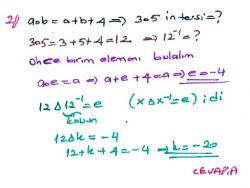 2) aob = a+b+4 ⇒ 3o5 in tersi=?
3o5=3+5+4=12 ⇒ 12⁻¹=?
Önce birim elemanı bulalım
aoe=a ⇒ a+e+4=a ⇒ e=-4
12 Δ 12⁻¹ = e (x Δ x⁻¹ = e) idi
k olsun
12 Δ k = -4
12+k+4=-4 ⇒ k=-20
CEVAP:A